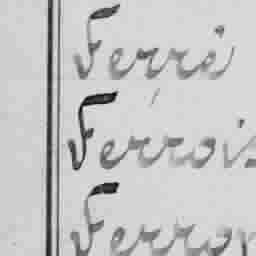 Ferré
Ferrois
Ferror